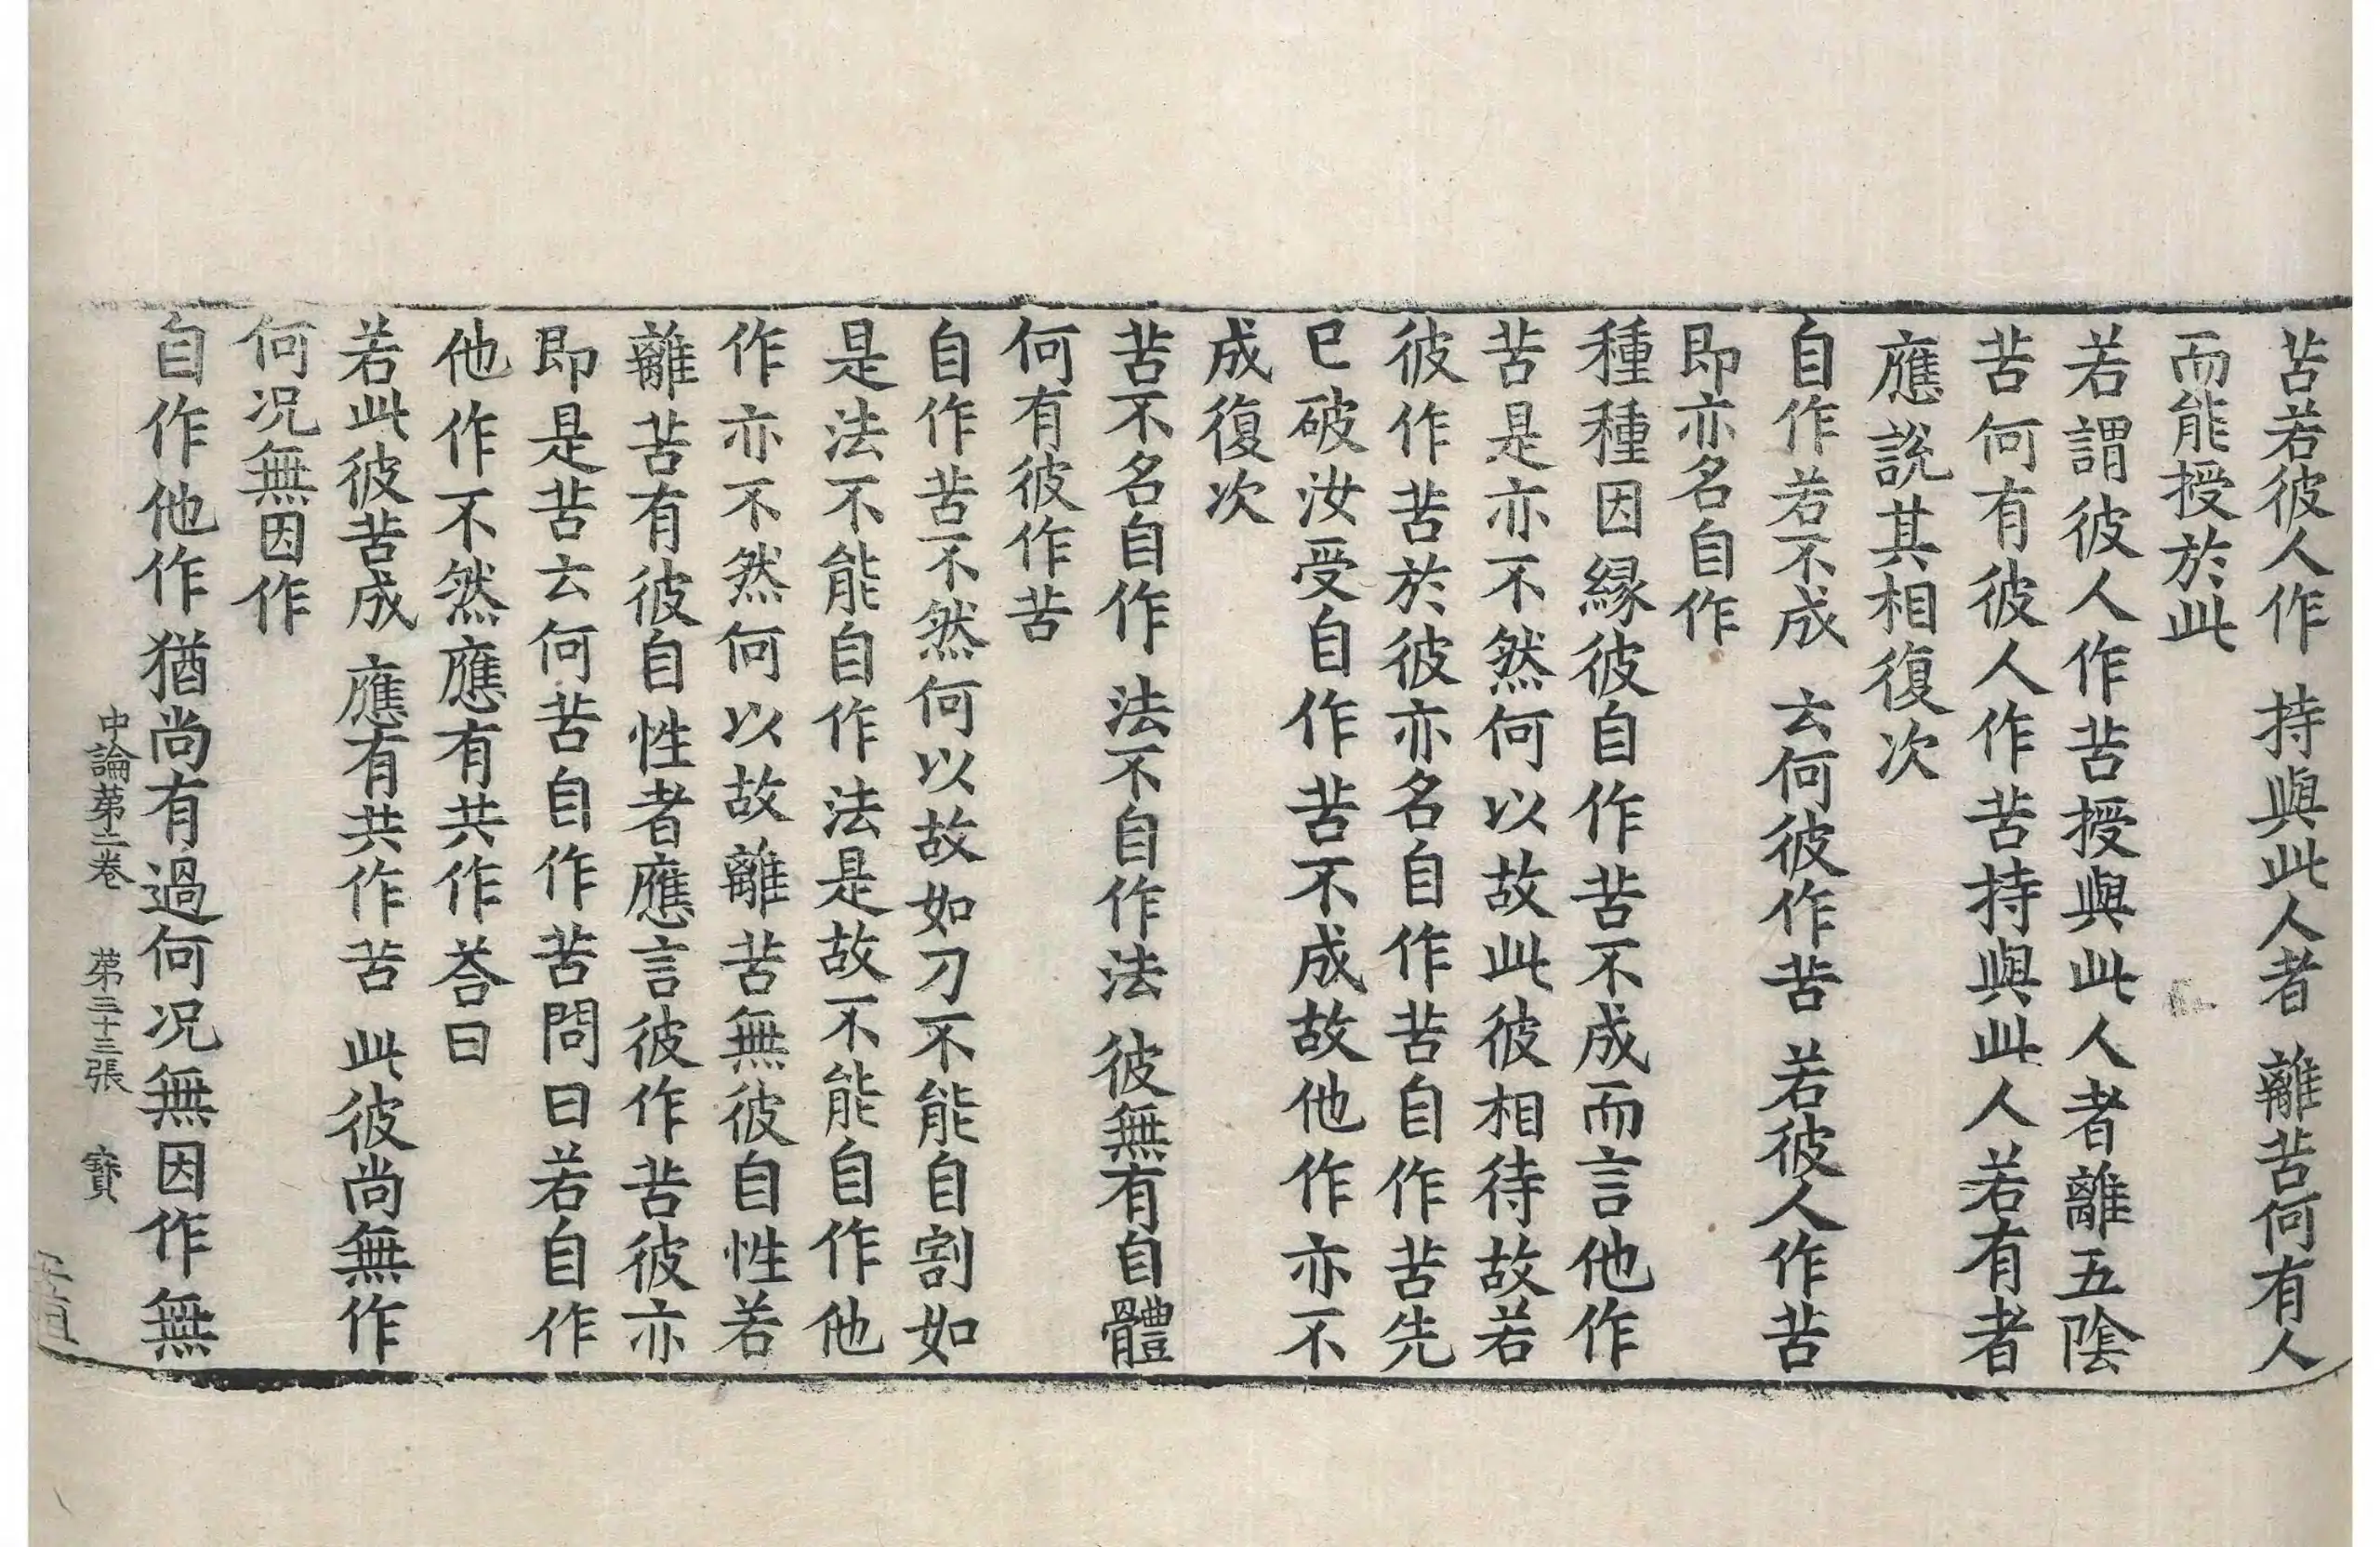 苦若彼人作　持與此人者　離苦何有人
而能授於此
若謂彼人作苦授與此人者離五陰
苦何有彼人作苦持與此人若有者
應說其相復次
自作若不成　云何彼作苦　若彼人作苦
即亦名自作
種種因縁彼自作苦不成而言他作
苦是亦不然何以故此彼相待故若
彼作苦於彼亦名自作苦自作苦先
已破汝受自作苦不成故他作亦不
成復次
苦不名自作　法不自作法　彼無有自體
何有彼作苦
自作苦不然何以故如刀不能自割如
是法不能自作法是故不能自作他
作亦不然何以故離苦無彼自性若
離苦有彼自性者應言彼作苦彼亦
即是苦云何苦自作苦問曰若自作
他作不然應有共作荅曰
若此彼苦成　應有共作苦　此彼尚無作
何况無因作
自作他作猶尚有過何况無因作無
中論苐二卷　苐三十三張　寳